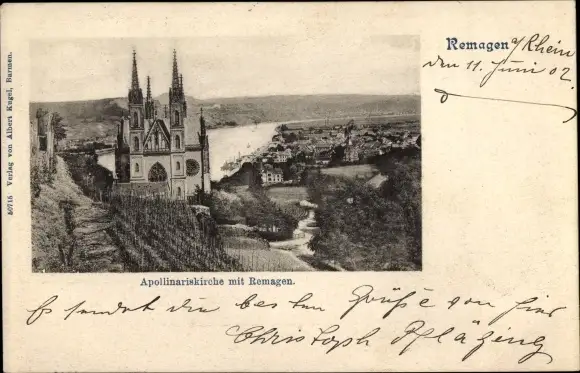 Remagen a/Rhein
den 11. Juni 02.
50715 Verlag von Albert Kugel, Barmen.
Apollinariskirche mit Remagen.
Es sendet die besten Grüße von hier
Christoph